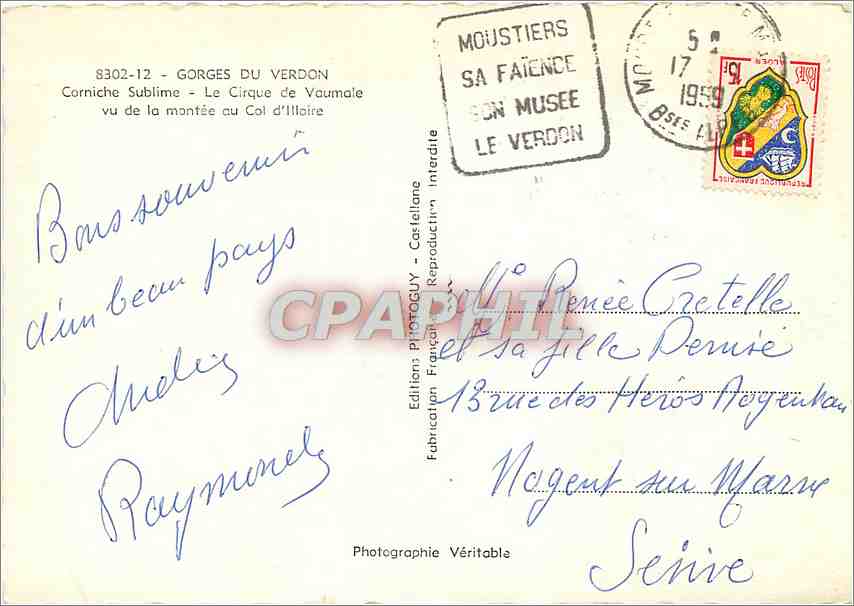 8302-12 - GORGES DU VERDON
Corniche Sublime - Le Cirque de Vaumale
vu de la montée au Col d'Illoire
MOUSTIERS
SA FAÏENCE
SON MUSEE
LE VERDON
17
1959
Bses ALP
15F
POSTES
ALGER
REPUBLIQUE FRANÇAISE
Bons souvenir
d'un beau pays
Andrée
Raymonde
Editions PHOTOGUY - Castellane
Fabrication Française - Reproduction Interdite
CPAPHIL
Me Renée Cretelle
et sa fille Denise
13 rue des Héros Nogentais
Nogent sur Marne
Seine
Photographie Véritable